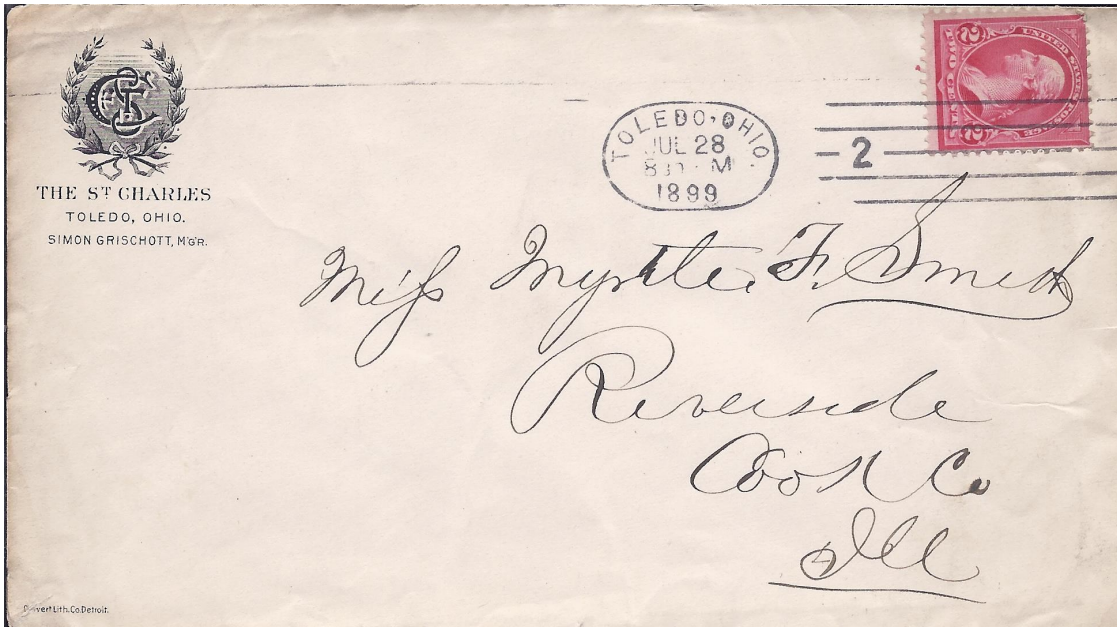 THE ST CHARLES
TOLEDO, OHIO.
SIMON GRISCHOTT, M'G'R.
TOLEDO, OHIO.
JUL 28
8 M
1899
2
UNITED STATES POSTAGE
2 2
Miss Myrtle F. Smith
Riverside
Cook Co
Ill
Calvert Lith. Co. Detroit.